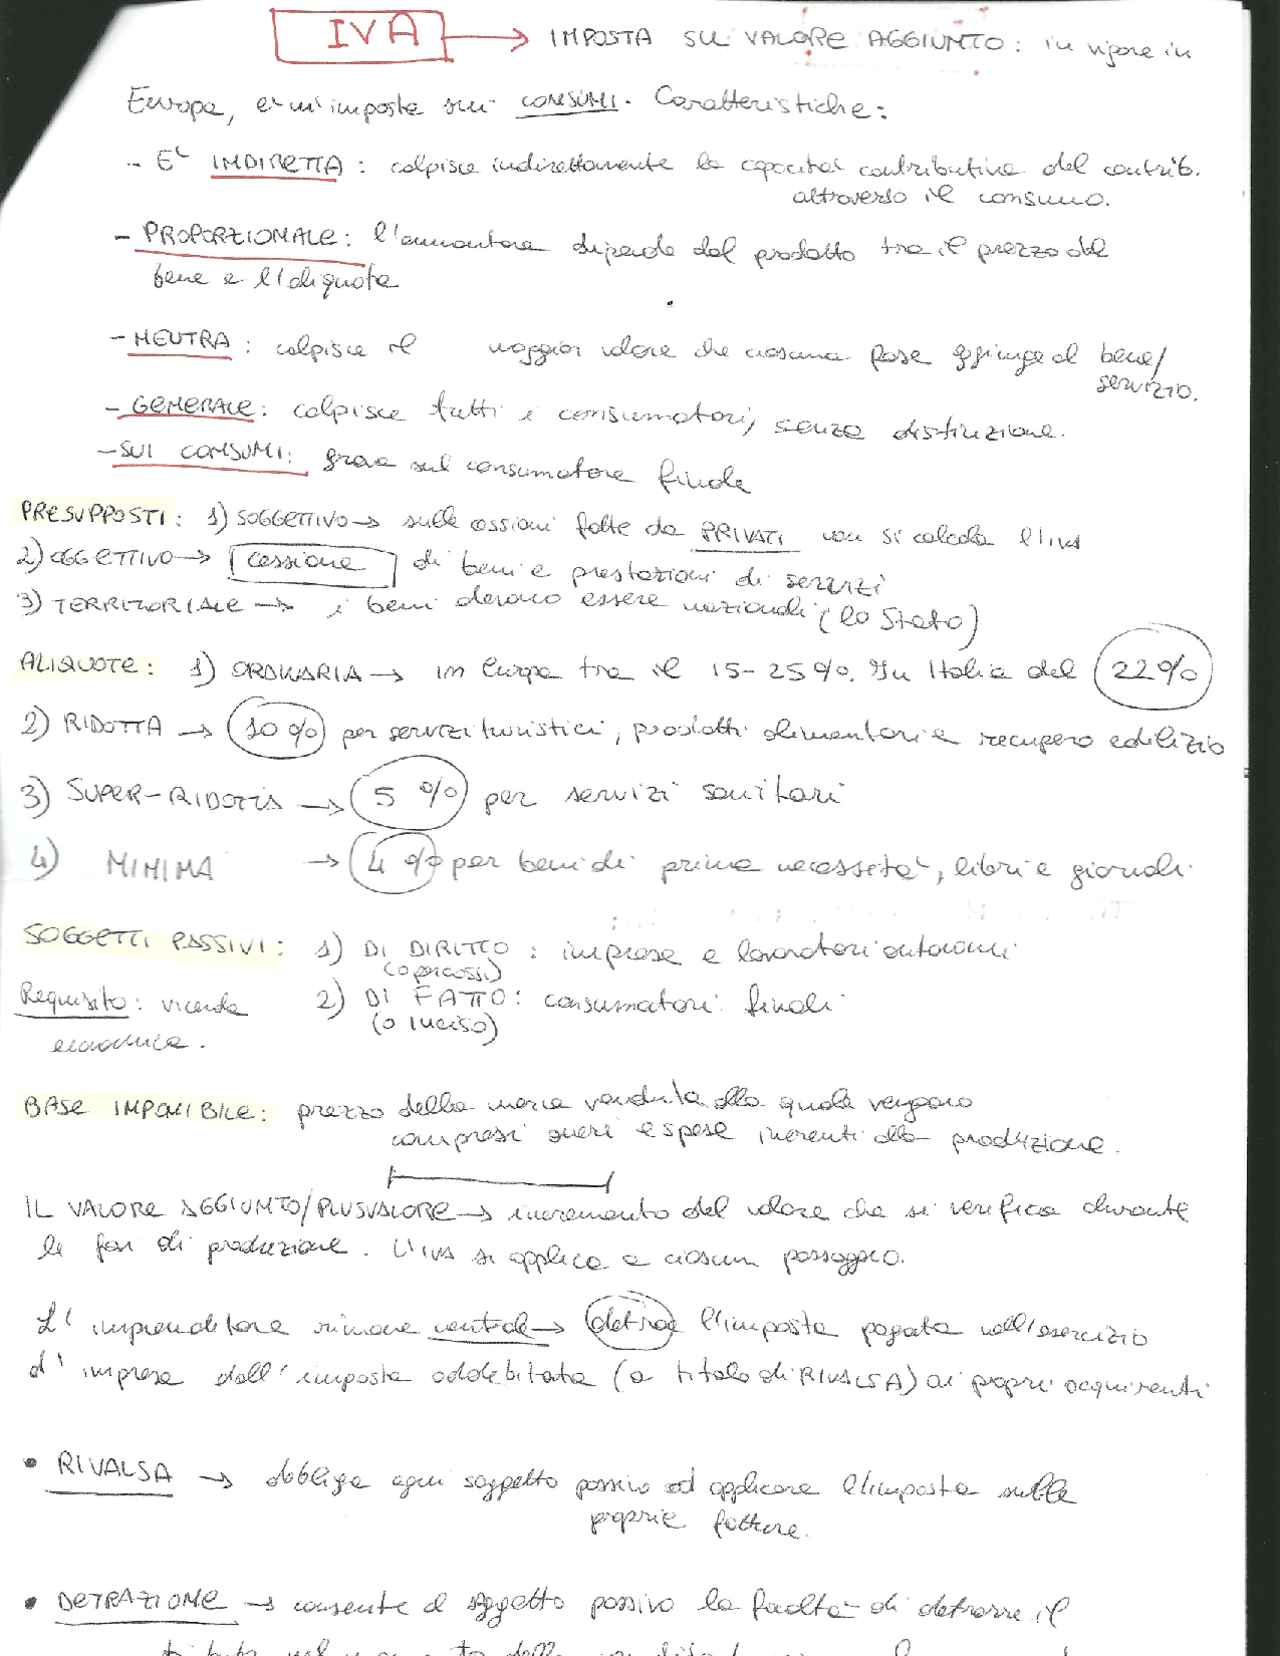 IVA → IMPOSTA SUL VALORE AGGIUNTO: in vigore in
Europa, è un'imposta sui CONSUMI. Caratteristiche:
- È INDIRETTA: colpisce indirettamente la capacità contributiva del contrib.
attraverso il consumo.
- PROPORZIONALE: l'ammontare dipende dal prodotto tra il prezzo del
bene e l'aliquota
- NEUTRA: colpisce il maggior valore che ciascuna fase aggiunge al bene/
servizio.
- GENERALE: colpisce tutti i consumatori, senza distinzione.
- SUI CONSUMI: grava sul consumatore finale
PRESUPPOSTI: 1) SOGGETTIVO → sulle cessioni fatte da PRIVATI non si calcola l'IVA
2) OGGETTIVO → cessione di beni e prestazioni di servizi
3) TERRITORIALE → i beni devono essere nazionali (lo Stato)
ALIQUOTE: 1) ORDINARIA → in Europa tra il 15-25%. In Italia del 22%
2) RIDOTTA → 10% per servizi turistici, prodotti alimentari e recupero edilizio
3) SUPER-RIDOTTA → 5% per servizi sanitari
4) MINIMA → 4% per beni di prima necessità, libri e giornali
SOGGETTI PASSIVI: 1) DI DIRITTO: imprese e lavoratori autonomi
(o percossi)
Requisito: vicenda 2) DI FATTO: consumatori finali
(o inciso)
economica.
BASE IMPONIBILE: prezzo della merce venduta alla quale vengono
compresi oneri e spese inerenti alla produzione.
IL VALORE AGGIUNTO/PLUSVALORE → incremento del valore che si verifica durante
le fasi di produzione. L'IVA si applica a ciascun passaggio.
L'imprenditore rimane neutrale → detrae l'imposta pagata nell'esercizio
d'impresa dall'imposta addebitata (a titolo di RIVALSA) ai propri acquirenti
• RIVALSA → obbliga ogni soggetto passivo ad applicare l'imposta sulle
proprie fatture.
• DETRAZIONE → consente al soggetto passivo la facoltà di detrarre il